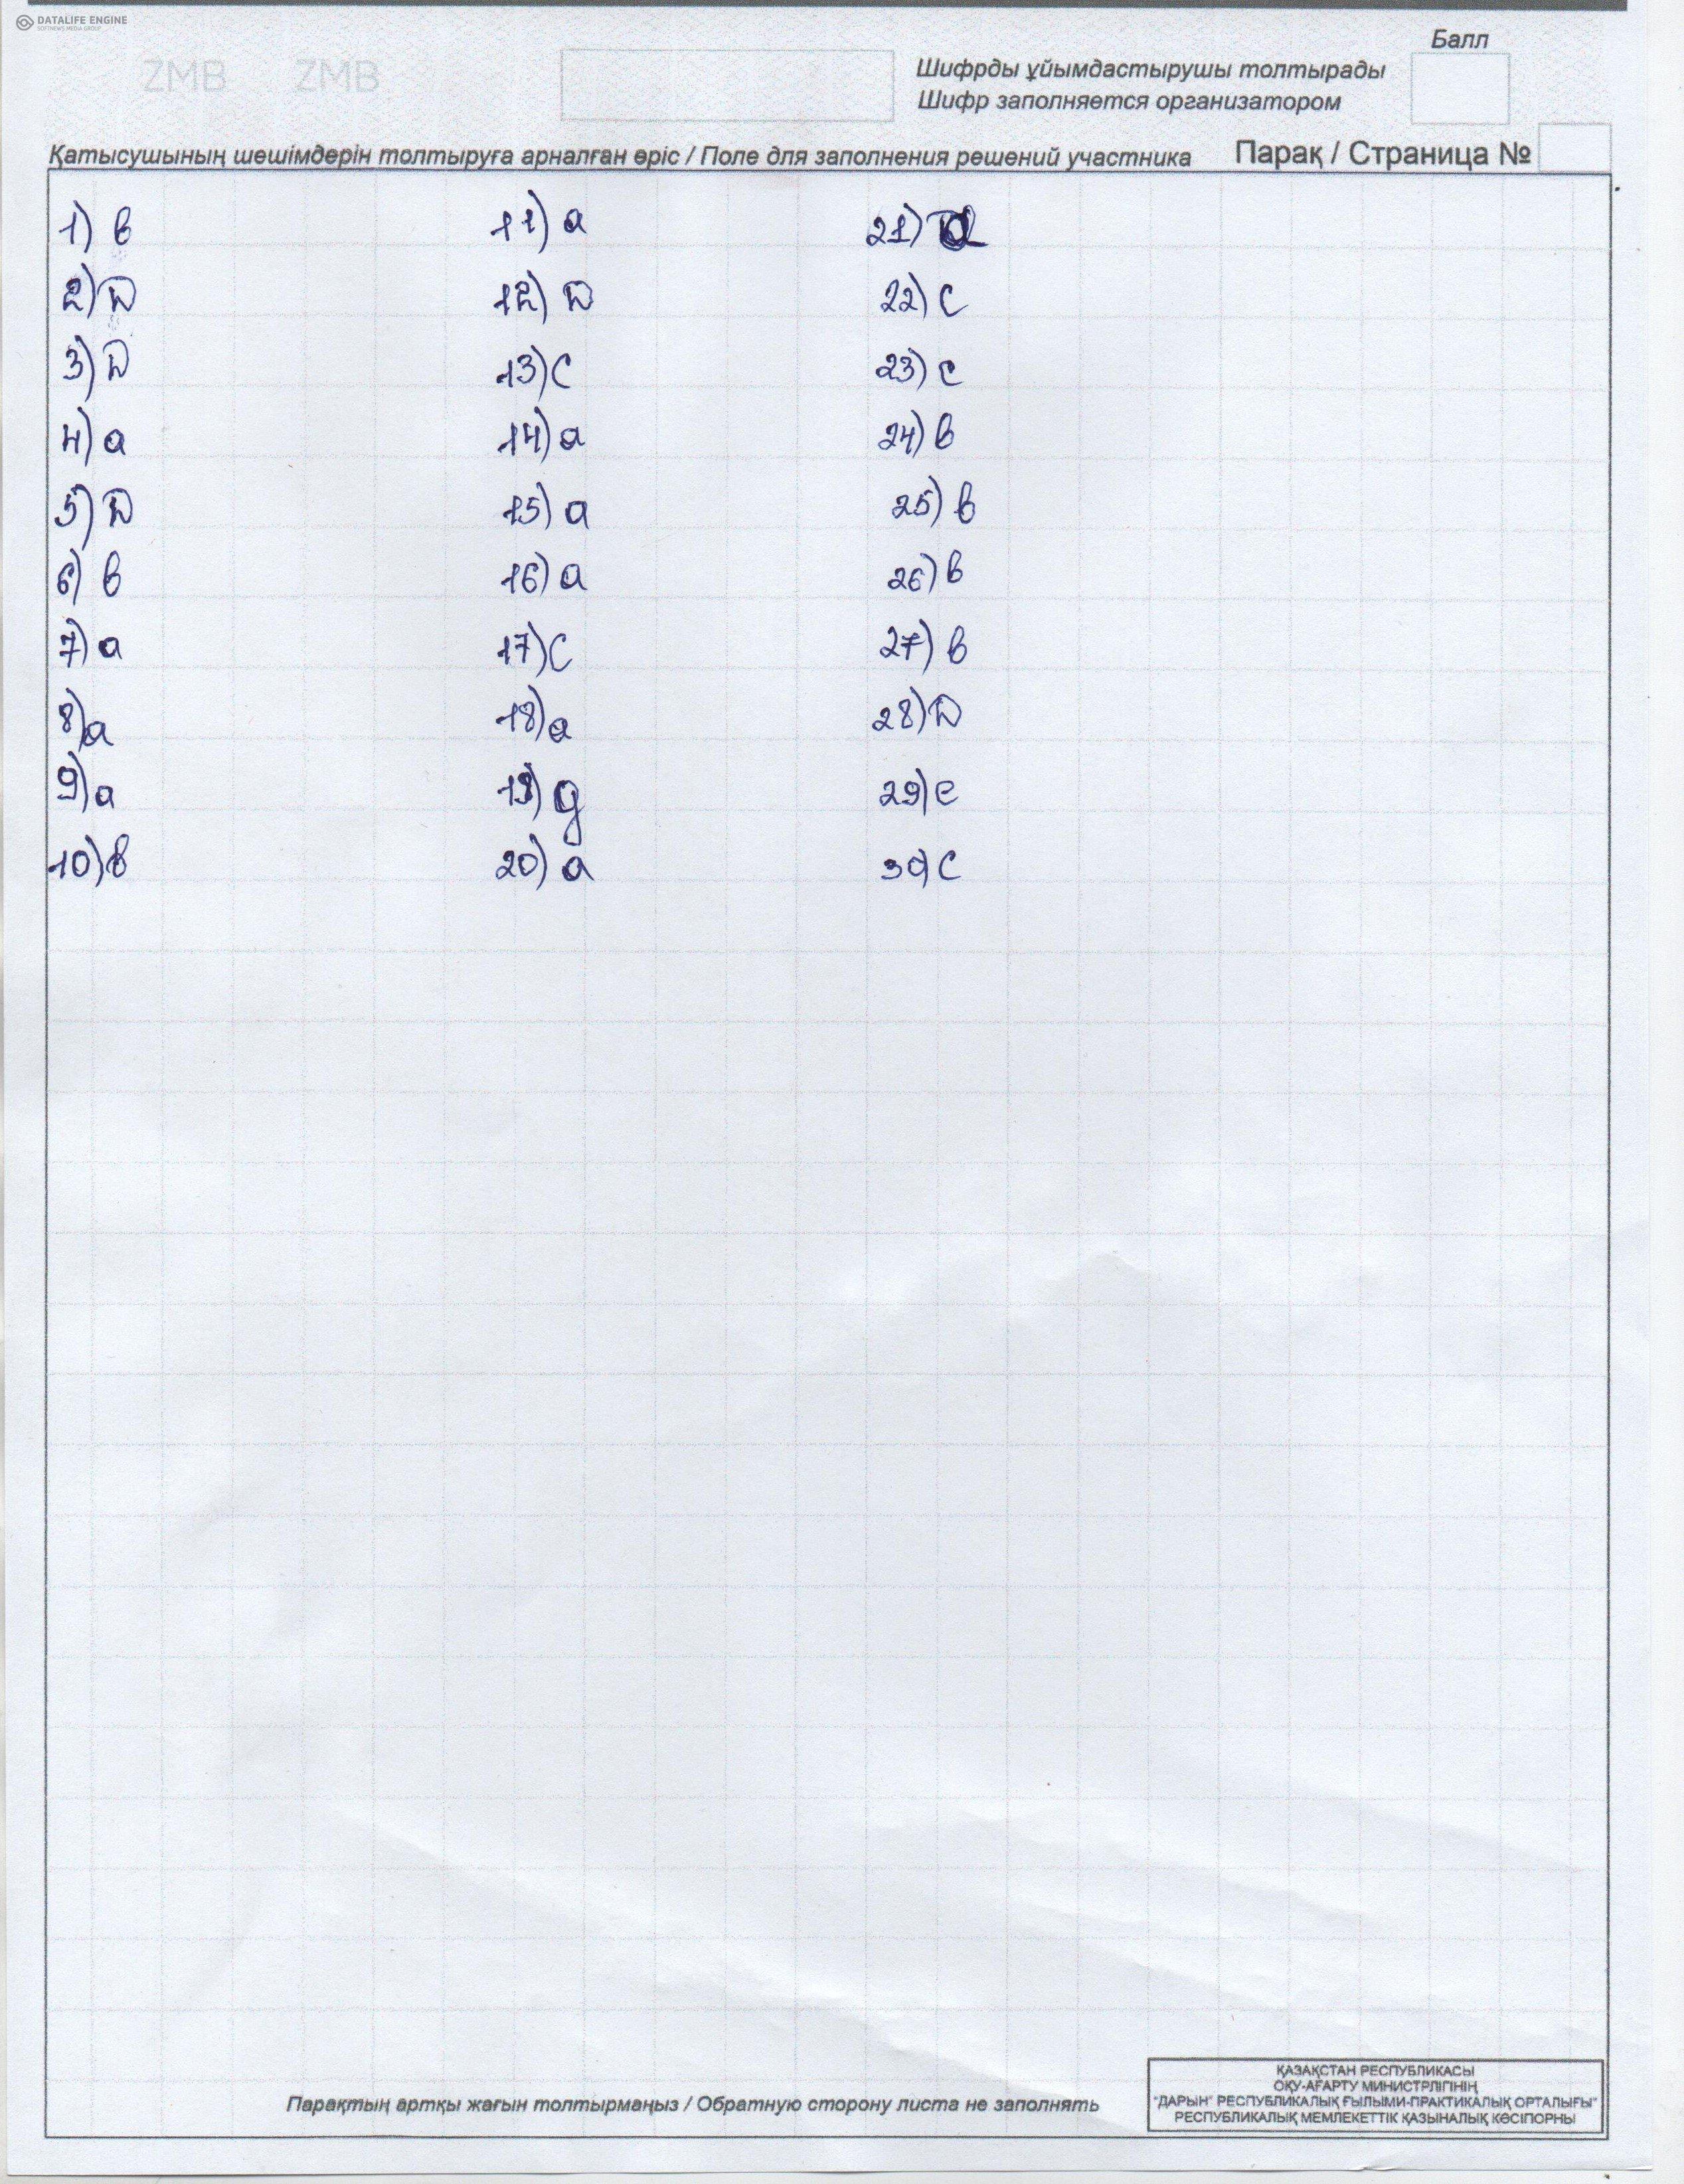 DATALIFE ENGINE
SOFTNEWS MEDIA GROUP
ZMB ZMB
Балл
Шифрды ұйымдастырушы толтырады
Шифр заполняется организатором
Қатысушының шешімдерін толтыруға арналған өріс / Поле для заполнения решений участника
Парақ / Страница №
1) в
2) D
3) D
4) а
5) D
6) в
7) а
8) а
9) а
10) в
11) а
12) D
13) С
14) а
15) а
16) а
17) С
18) а
19) д
20) а
21)
22) С
23) С
24) в
25) в
26) в
27) в
28) D
29) с
30) С
Парақтың артқы жағын толтырмаңыз / Обратную сторону листа не заполнять
ҚАЗАҚСТАН РЕСПУБЛИКАСЫ
ОҚУ-АҒАРТУ МИНИСТРЛІГІНІҢ
"ДАРЫН" РЕСПУБЛИКАЛЫҚ ҒЫЛЫМИ-ПРАКТИКАЛЫҚ ОРТАЛЫҒЫ"
РЕСПУБЛИКАЛЫҚ МЕМЛЕКЕТТІК ҚАЗЫНАЛЫҚ КӘСІПОРНЫ